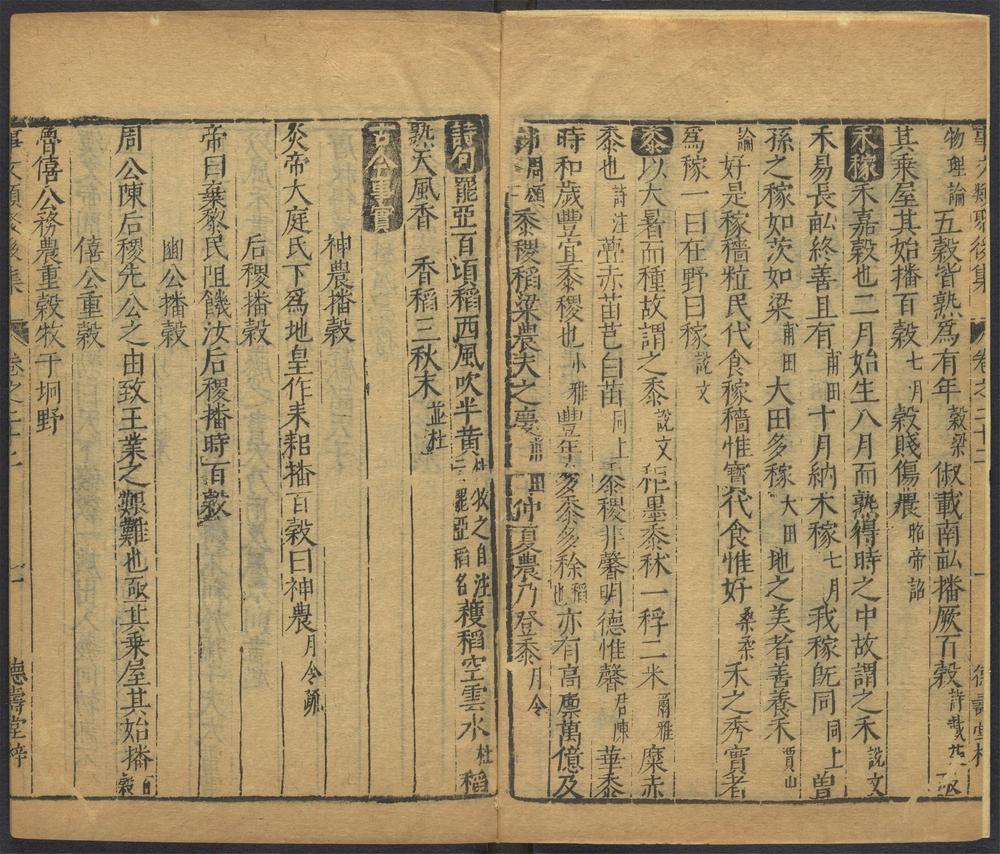 事文類聚後集 卷之二十二 一 德壽堂梓
物理論五穀皆熟爲有年穀梁俶載南畝播厥百穀詩載
其乗屋其始播百穀七月穀賤傷農昭帝詔
禾稼禾嘉穀也二月始生八月而熟得時之中故謂之禾說文
禾易長畝終善且有甫田十月納禾稼七月我稼旣同同上曽
孫之稼如茨如梁甫田大田多稼大田地之美者善養禾賈山
論好是稼穡粒民代食稼穡惟寳代食惟好桑柔禾之秀實者
爲稼一曰在野曰稼說文
黍以大暑而種故謂之黍說文秬黑黍秠一稃二米爾雅穈赤
黍也詩注虋赤苗芑白苗同上黍稷非馨明德惟馨君陳華黍
時和歲豐宜黍稷也小雅豐年多黍多稌稻也亦有高廪萬億及
秭周頌黍稷稻梁農夫之慶甫田仲夏農乃登黍月令
詩句䆉稏百頃稻西風吹半黄杜牧之自注䆉稏稻名穫稻空雲水杜稻
熟天風香 香稻三秋末並杜
古今事實
神農播穀
炎帝大庭氏下爲地皇作耒耜播百穀曰神農月令疏
后稷播穀
帝曰棄黎民阻饑汝后稷播時百穀
豳公播穀
周公陳后稷先公之由致王業之艱難也亟其乗屋其始播百穀
僖公重穀
魯僖公務農重穀牧于坰野
事文類聚後集 卷之二十二 德壽堂梓